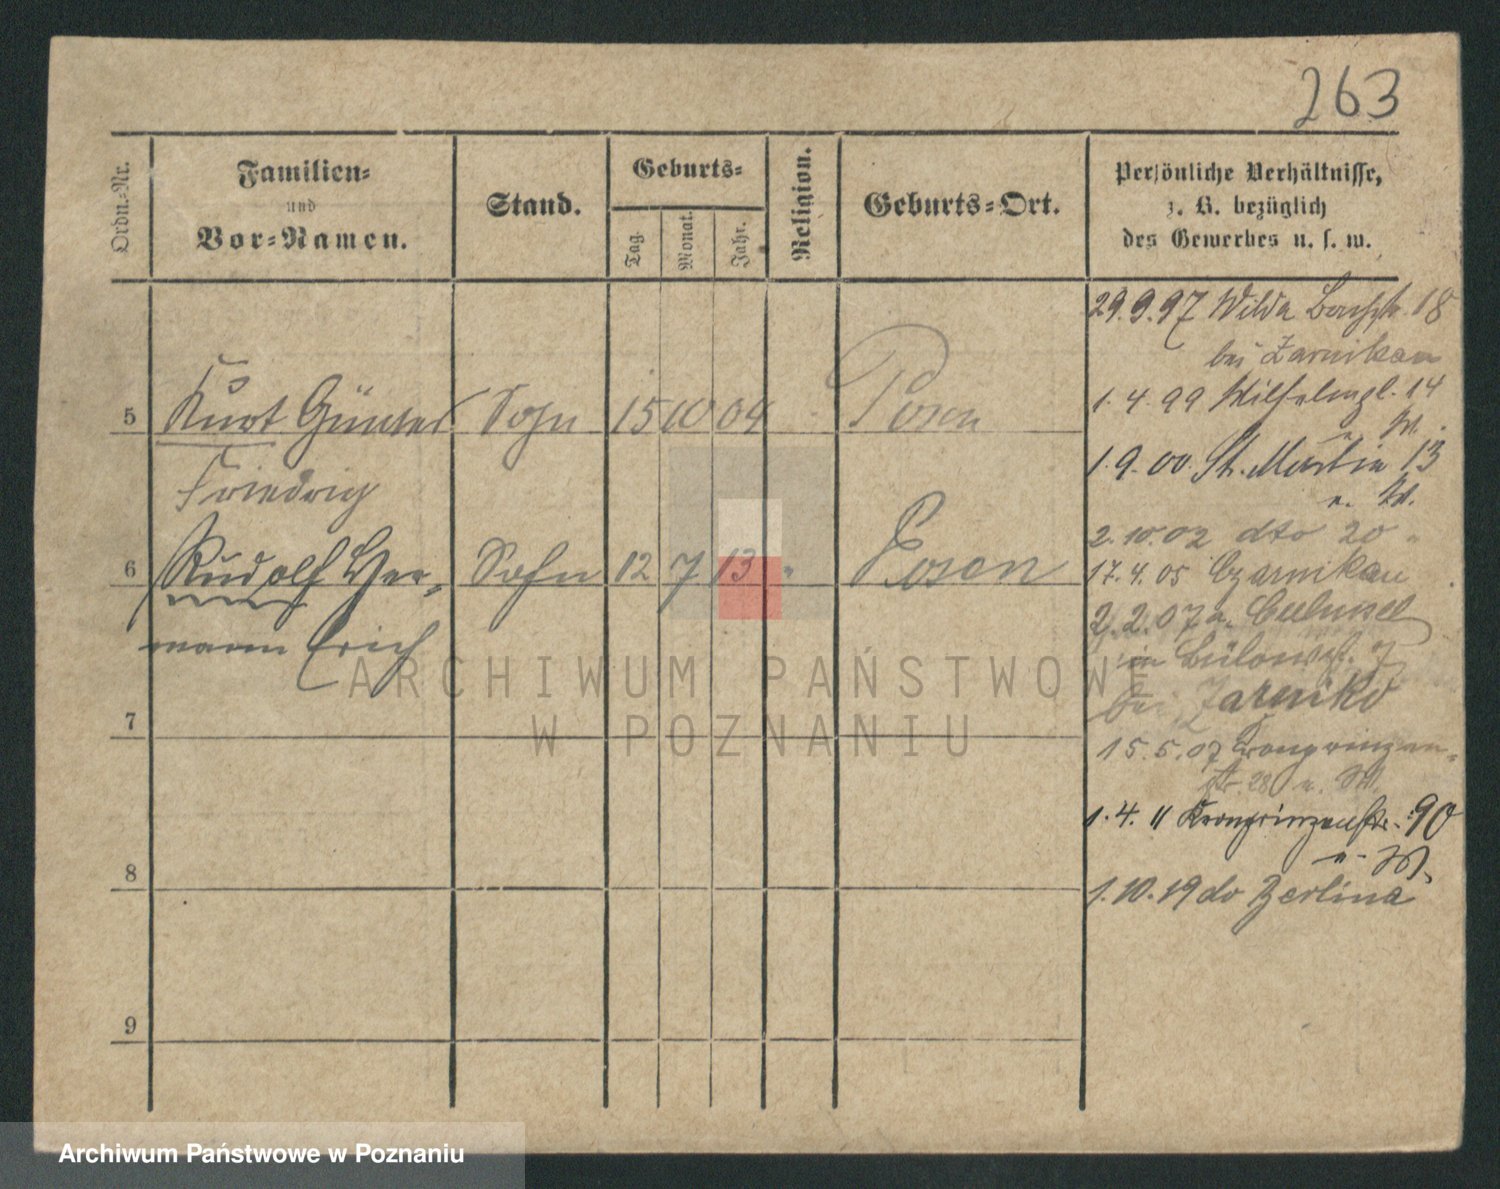 263
Ordn.-Nr.
Familien-
und
Vor-Namen.
Stand.
Geburts-
Tag.
Monat.
Jahr.
Religion.
Geburts-Ort.
Persönliche Verhältnisse,
z. B. bezüglich
des Gewerbes u. s. w.
5 Kurt Günter Sohn 15 10 04 Posen
Friedrich
6 Rudolf Her- Sohn 12 7 13 " Posen
mann Erich
7
8
9
29.9.97 Wilda 18
bei Zarnikau
1.4.99 14
u. W.
1.9.00 St. Martin 13
u. W.
2.10.02 dto 20
17.4.05 Czarnikau
2.2.07 a.
in Bülowstr. 7
bei Zarniko
15.5.07 Kronprinzen-
str. 28 u. W.
1.4.11 Kronprinzenstr. 90
u. W.
1.10.19 do Berlina
ARCHIWUM PAŃSTWOWE
W POZNANIU
Archiwum Państwowe w Poznaniu